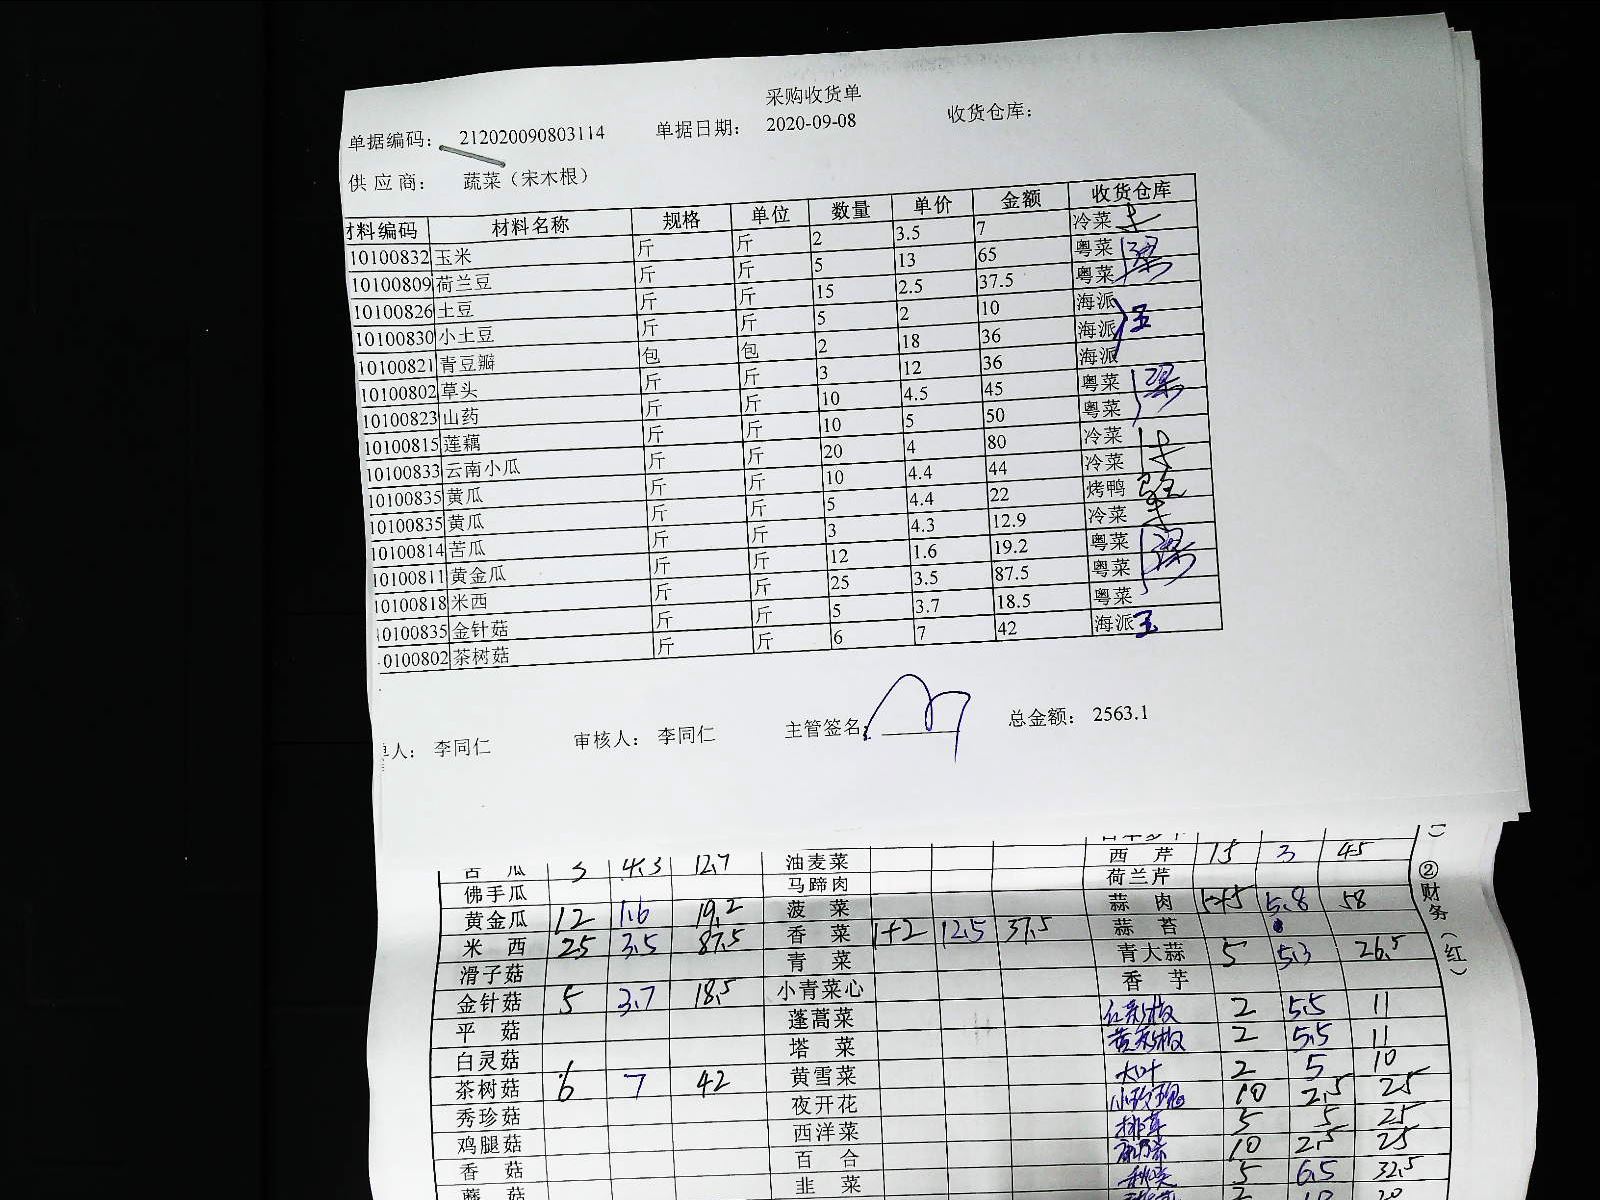 采购收货单
单据编码： 212020090803114 单据日期： 2020-09-08 收货仓库：
供 应 商： 蔬菜（宋木根）
材料编码 材料名称 规格 单位 数量 单价 金额 收货仓库
10100832 玉米 斤 斤 2 3.5 7 冷菜
10100809 荷兰豆 斤 斤 5 13 65 粤菜
10100826 土豆 斤 斤 15 2.5 37.5 粤菜
10100830 小土豆 斤 斤 5 2 10 海派
10100821 青豆瓣 包 包 2 18 36 海派 王
10100802 草头 斤 斤 3 12 36 海派
10100823 山药 斤 斤 10 4.5 45 粤菜
10100815 莲藕 斤 斤 10 5 50 粤菜
10100833 云南小瓜 斤 斤 20 4 80 冷菜
10100835 黄瓜 斤 斤 10 4.4 44 冷菜
10100835 黄瓜 斤 斤 5 4.4 22 烤鸭
10100814 苦瓜 斤 斤 3 4.3 12.9 冷菜
10100811 黄金瓜 斤 斤 12 1.6 19.2 粤菜
10100818 米西 斤 斤 25 3.5 87.5 粤菜
10100835 金针菇 斤 斤 5 3.7 18.5 粤菜
0100802 茶树菇 斤 斤 6 7 42 海派 王
单人： 李同仁 审核人： 李同仁 主管签名： 总金额： 2563.1
苦 瓜 3 4.3 12.9 油麦菜 西 芹 15 3 45
佛手瓜 马蹄肉 荷兰芹
黄金瓜 12 1.6 19.2 菠 菜 蒜 肉 5+5 5.8 58
米 西 25 3.5 87.5 香 菜 1+2 12.5 37.5 蒜 苔
滑子菇 青 菜 青大蒜 5 5.3 26.5
金针菇 5 3.7 18.5 小青菜心 香 芋
平 菇 蓬蒿菜 红彩椒 2 5.5 11
白灵菇 塔 菜 黄彩椒 2 5.5 11
茶树菇 6 7 42 黄雪菜 大叶 2 5 10
秀珍菇 夜开花 小玫瑰 10 2.5 25
鸡腿菇 西洋菜 排草 5 5 25
香 菇 百 合 10 2.5 25
菇 韭 菜 5 6.5 32.5
②财务（红）